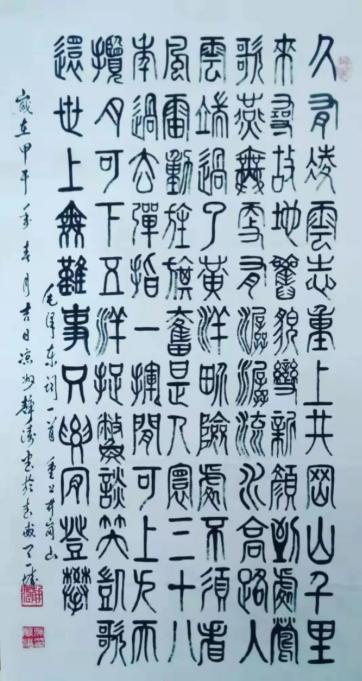 久有凌雲志重上井岡山千里
來尋故地舊貌變新顏到處鶯
歌燕舞更有潺潺流水高路入
雲端過了黃洋界險處不須看
風雷動旌旗奮是人寰三十八
年過去彈指一揮間可上九天
攬月可下五洋捉鱉談笑凱歌
還世上無難事只要肯登攀
毛泽东词一首 重上井岗山
歲在甲午年春月吉日凉州靜涛书於